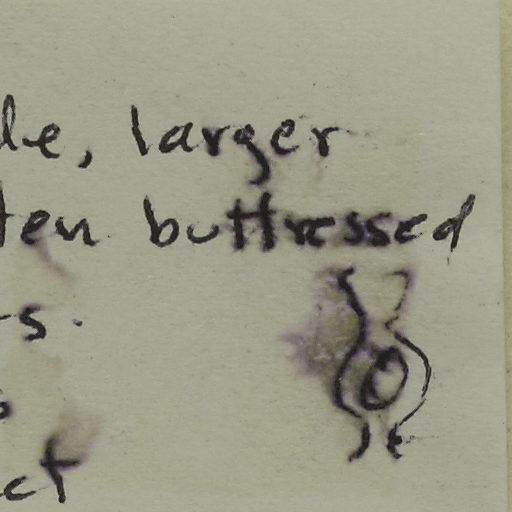 le, larger
ten buttressed
s.
ct